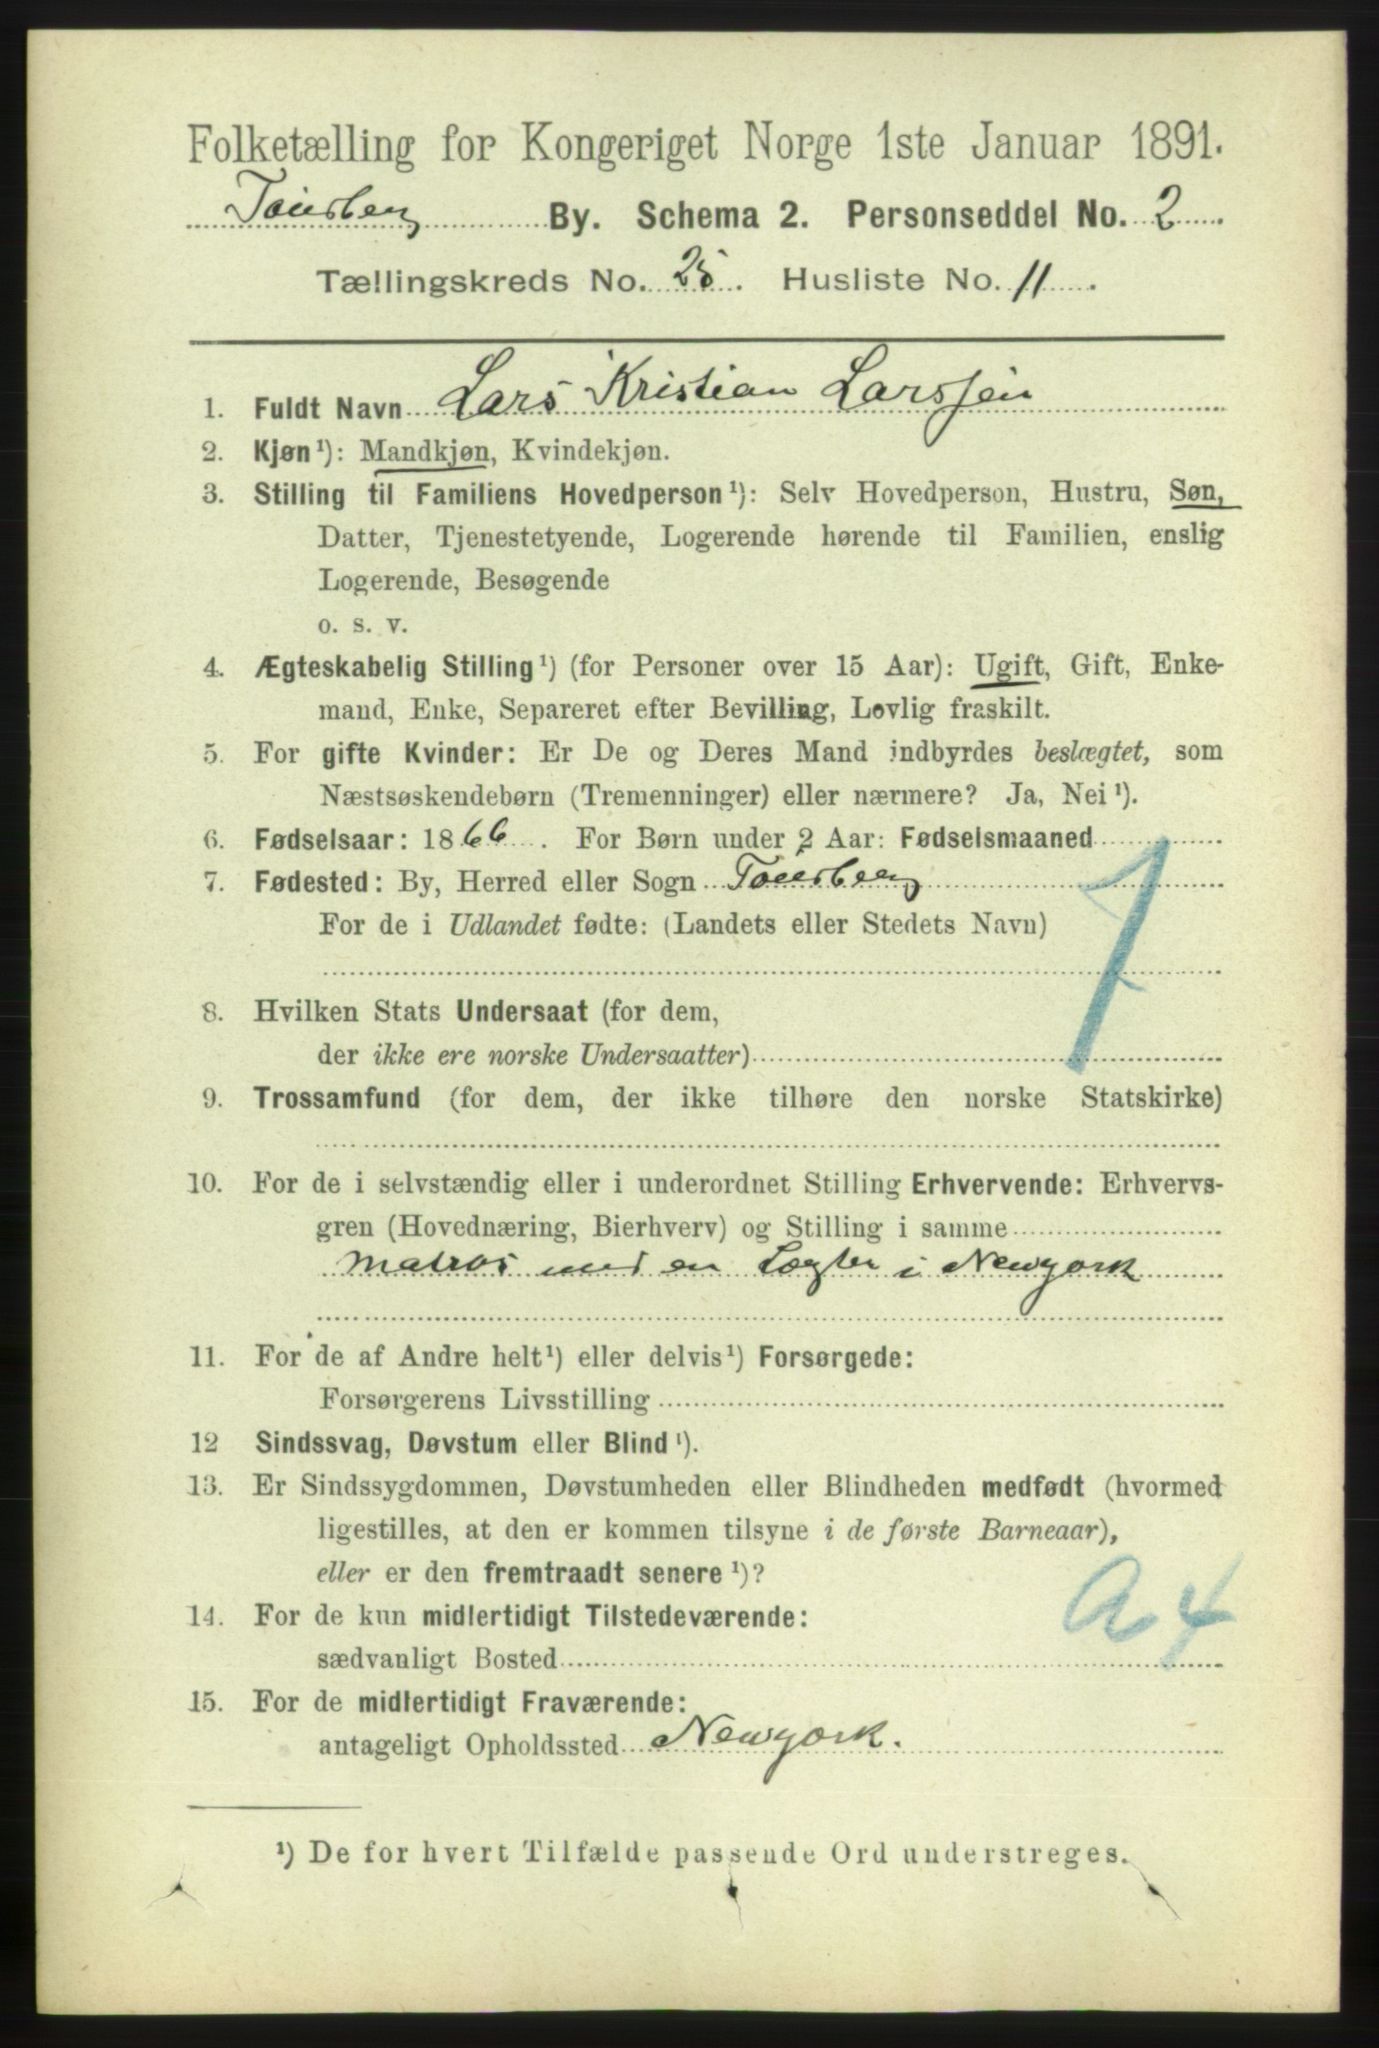 Folketælling for Kongeriget Norge 1ste Januar 1891.
Tønsberg By. Schema 2. Personseddel No. 2
Tællingskreds No. 25. Husliste No. 11.
1. Fuldt Navn Lars Kristian Larssen
2. Kjøn¹): Mandkjøn, Kvindekjøn.
3. Stilling til Familiens Hovedperson¹): Selv Hovedperson, Hustru, Søn,
Datter, Tjenestetyende, Logerende hørende til Familien, enslig
Logerende, Besøgende
o. s. v.
4. Ægteskabelig Stilling¹) (for Personer over 15 Aar): Ugift, Gift, Enke-
mand, Enke, Separeret efter Bevilling, Lovlig fraskilt.
5. For gifte Kvinder: Er De og Deres Mand indbyrdes beslægtet, som
Næstsøskendebørn (Tremenninger) eller nærmere? Ja, Nei¹).
6. Fødselsaar: 1866. For Børn under 2 Aar: Fødselsmaaned
7. Fødested: By, Herred eller Sogn Tønsberg
For de i Udlandet fødte: (Landets eller Stedets Navn)
8. Hvilken Stats Undersaat (for dem,
der ikke ere norske Undersaatter)
9. Trossamfund (for dem, der ikke tilhøre den norske Statskirke)
10. For de i selvstændig eller i underordnet Stilling Erhvervende: Erhvervs-
gren (Hovednæring, Bierhverv) og Stilling i samme
Matros med en Lægter i Newyork
11. For de af Andre helt¹) eller delvis¹) Forsørgede:
Forsørgerens Livsstilling
12 Sindssvag, Døvstum eller Blind¹).
13. Er Sindssygdommen, Døvstumheden eller Blindheden medfødt (hvormed
ligestilles, at den er kommen tilsyne i de første Barneaar),
eller er den fremtraadt senere¹)?
A 4
14. For de kun midlertidigt Tilstedeværende:
sædvanligt Bosted
15. For de midlertidigt Fraværende:
antageligt Opholdssted Newyork.
¹) De for hvert Tilfælde passende Ord understreges.